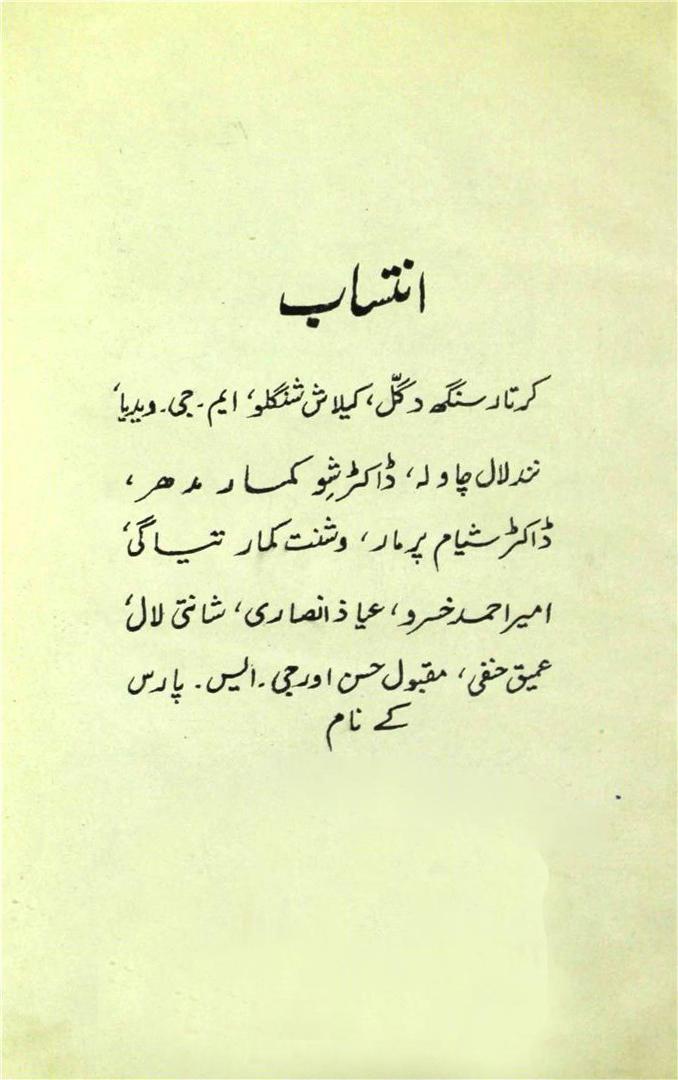 انتساب
کرتار سنگھ دگّل، کیلاش شنگلو، ایم۔ جی۔ ویدیا،
نند لال چاولہ، ڈاکٹر شِو کمار مدھر،
ڈاکٹر شیام پرمار، وشنت کمار تیاگی،
امیر احمد خسرو، عیاذ انصاری، شانتی لال،
عمیق حنفی، مقبول حسن اور جی۔ ایس۔ پارس
کے نام